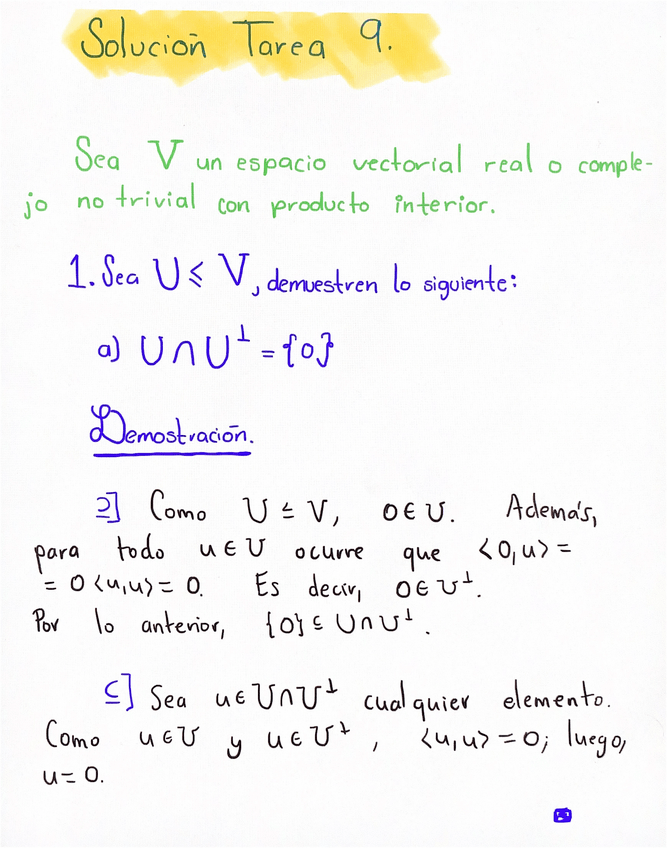 Solución Tarea 9.
Sea V un espacio vectorial real o comple-
jo no trivial con producto interior.
1. Sea U ≤ V, demuestren lo siguiente:
a) U ∩ U⊥ = {0}
Demostración.
⊇] Como U ≤ V, 0 ∈ U. Además,
para todo u ∈ U ocurre que <0,u> =
= 0 <u,u> = 0. Es decir, 0 ∈ U⊥.
Por lo anterior, {0} ⊆ U ∩ U⊥.
⊆] Sea u ∈ U ∩ U⊥ cualquier elemento.
Como u ∈ U y u ∈ U⊥, <u,u> = 0; luego,
u = 0.